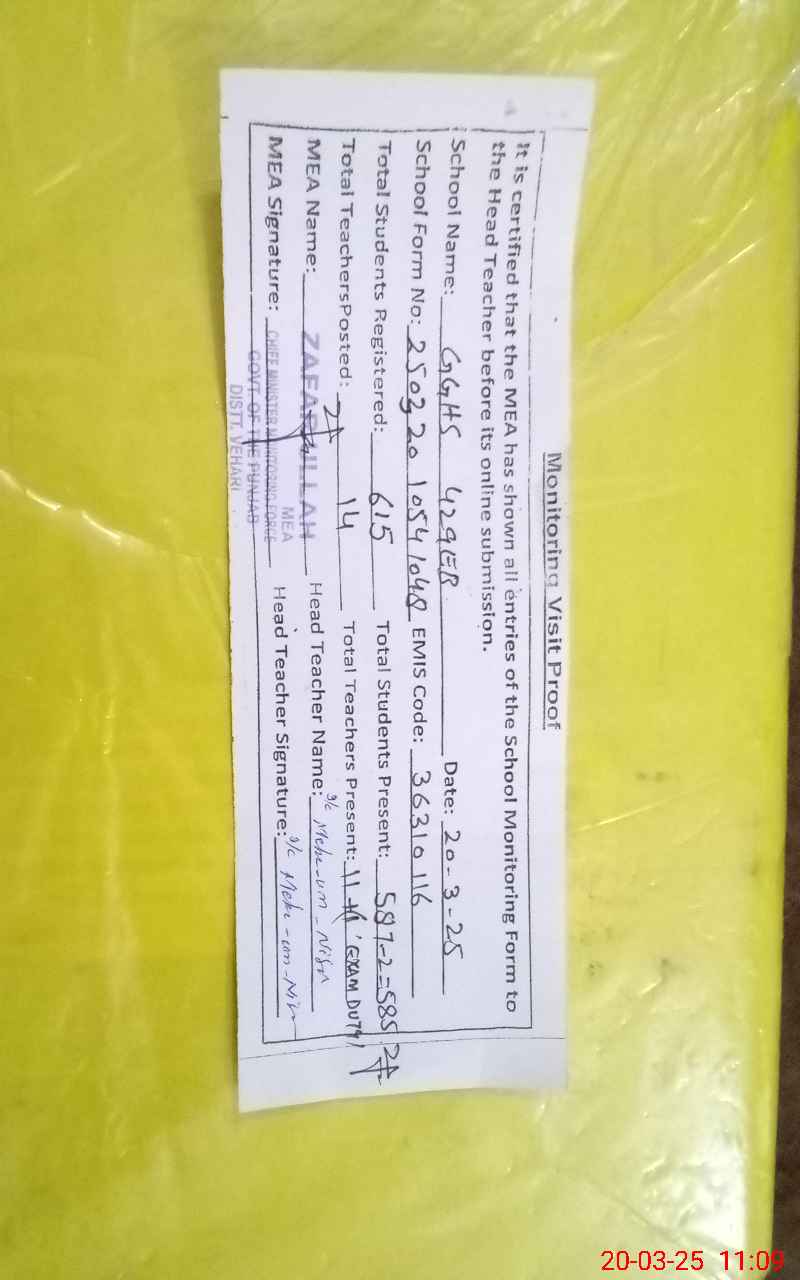 Monitoring Visit Proof
It is certified that the MEA has shown all entries of the School Monitoring Form to
the Head Teacher before its online submission.
School Name: GGHS 429EB Date: 20-3-25
School Form No: 250320 10541048 EMIS Code: 36310116
Total Students Registered: 615 Total Students Present: 587-2=585
Total TeachersPosted: 14 Total Teachers Present: 11+1 (EXAM DUTY)
MEA Name: ZAFAR ULLAH Head Teacher Name: o/c Mehr-un-Nisa
MEA
MEA Signature: CHIEF MINISTER MONITORING FORCE Head Teacher Signature: o/c Mehr-un-Nisa
GOVT OF THE PUNJAB
DISTT. VEHARI
20-03-25 11:09